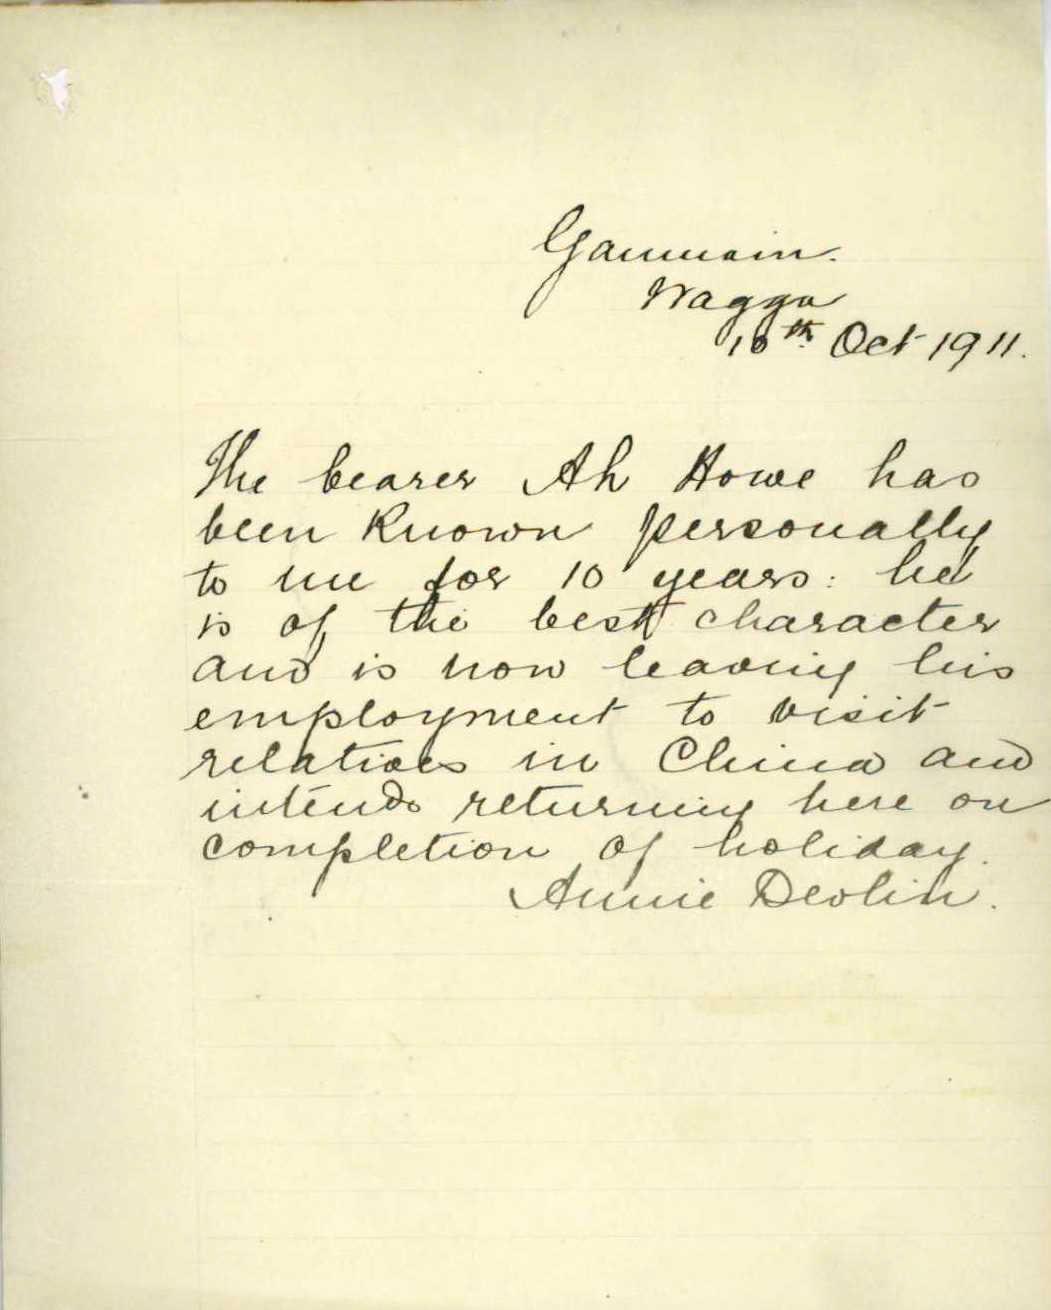 Ganmain.
Wagga
10th Oct 1911.
The bearer Ah Howe has
been known personally
to me for 10 years: he
is of the best character
and is now leaving his
employment to visit
relatives in China and
intends returning here on
completion of holiday.
Annie Devlin.